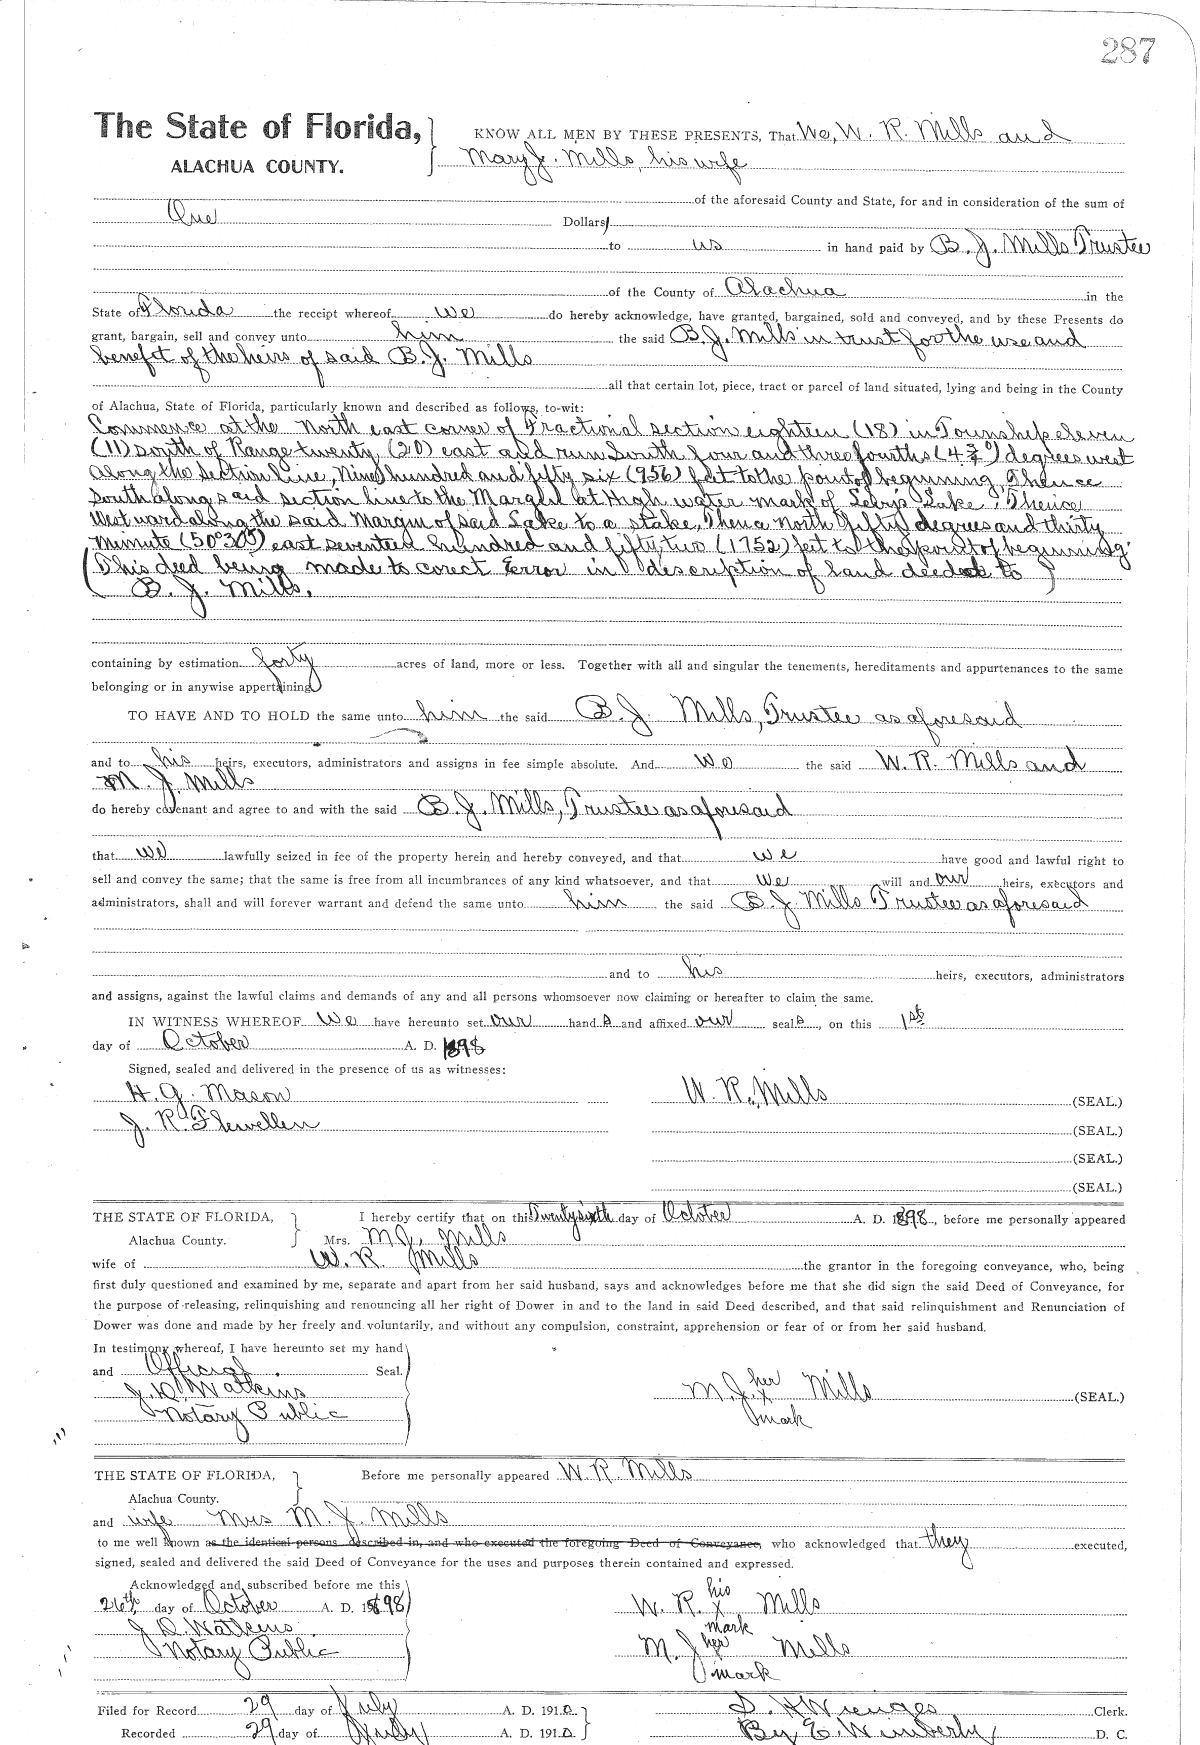 287
The State of Florida, KNOW ALL MEN BY THESE PRESENTS, That We, W. R. Mills and
ALACHUA COUNTY. Mary J. Mills, his wife
of the aforesaid County and State, for and in consideration of the sum of
One Dollars
to us in hand paid by B. J. Mills Trustee
of the County of Alachua in the
State of Florida the receipt whereof we do hereby acknowledge, have granted, bargained, sold and conveyed, and by these Presents do
grant, bargain, sell and convey unto him the said B. J. Mills in trust for the use and
benefit of the heirs of said B. J. Mills
all that certain lot, piece, tract or parcel of land situated, lying and being in the County
of Alachua, State of Florida, particularly known and described as follows, to-wit:
Commence at the North east corner of Fractional section eighteen (18) in Township eleven
(11) south of Range twenty (20) east and run South four and three fourths (4¾°) degrees west
along the section line, Nine hundred and fifty six (956) feet to the point of beginning, Thence
South along said section line to the Margin at High water mark of Lake; Thence
West ward along the said Margin of said Lake to a stake, Thence North fifty degrees and thirty
Minute (50°30') east seventeen hundred and fifty two (1752) feet to the point of beginning.
(This deed being made to corect Error in description of land deeded to
B. J. Mills.)
containing by estimation forty acres of land, more or less. Together with all and singular the tenements, hereditaments and appurtenances to the same
belonging or in anywise appertaining
TO HAVE AND TO HOLD the same unto him the said B. J. Mills, Trustee as aforesaid
and to his heirs, executors, administrators and assigns in fee simple absolute. And we the said W. R. Mills and
M. J. Mills
do hereby covenant and agree to and with the said B. J. Mills, Trustee as aforesaid
that we lawfully seized in fee of the property herein and hereby conveyed, and that we have good and lawful right to
sell and convey the same; that the same is free from all incumbrances of any kind whatsoever, and that we will and our heirs, executors and
administrators, shall and will forever warrant and defend the same unto him the said B. J. Mills Trustee as aforesaid
and to his heirs, executors, administrators
and assigns, against the lawful claims and demands of any and all persons whomsoever now claiming or hereafter to claim the same.
IN WITNESS WHEREOF We have hereunto set our hands and affixed our seals, on this 1st
day of October A. D. 1898
Signed, sealed and delivered in the presence of us as witnesses:
H. G. Mason W. R. Mills (SEAL.)
J. R. Flewellen (SEAL.)
(SEAL.)
(SEAL.)
THE STATE OF FLORIDA, I hereby certify that on this Twenty sixth day of October A. D. 1898, before me personally appeared
Alachua County. Mrs. M. J. Mills
wife of W. R. Mills the grantor in the foregoing conveyance, who, being
first duly questioned and examined by me, separate and apart from her said husband, says and acknowledges before me that she did sign the said Deed of Conveyance, for
the purpose of releasing, relinquishing and renouncing all her right of Dower in and to the land in said Deed described, and that said relinquishment and Renunciation of
Dower was done and made by her freely and voluntarily, and without any compulsion, constraint, apprehension or fear of or from her said husband.
In testimony whereof, I have hereunto set my hand
and Official Seal.
J. D. Watkins M. J. her x mark Mills (SEAL.)
Notary Public
THE STATE OF FLORIDA, Before me personally appeared W. R. Mills
Alachua County.
and wife Mrs M. J. Mills
to me well known as the identical persons described in, and who executed the foregoing Deed of Conveyance, who acknowledged that they executed,
signed, sealed and delivered the said Deed of Conveyance for the uses and purposes therein contained and expressed.
Acknowledged and subscribed before me this
26th day of October A. D. 1898 W. R. his x mark Mills
J. D. Watkins
Notary Public M. J. her mark Mills
Filed for Record 29 day of July A. D. 1910 S. H. Wienges Clerk.
Recorded 29 day of July A. D. 1910 By E. Wimberly D. C.